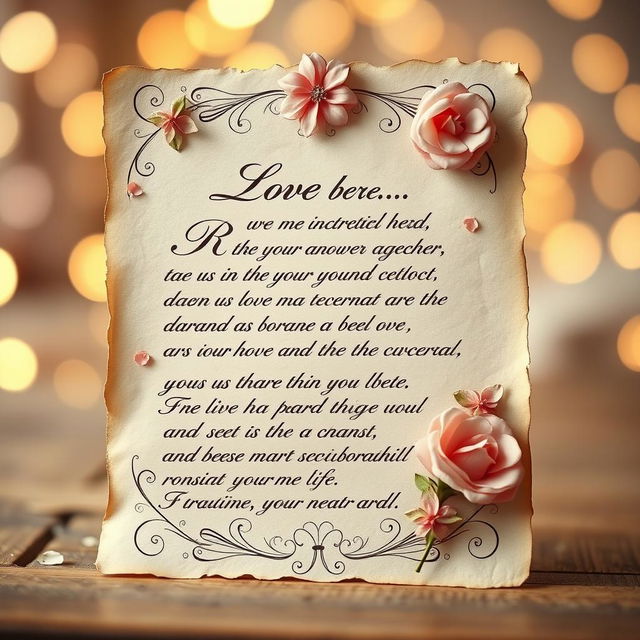 Love bere....
R we me inctreticl herd,
the your anower agecher,
tae us in the your yound cetloct,
daen us love ma tecernat are the
darand as borane a beel ove,
ars iour hove and the the cwcerral,
yous us thare thin you lbete.
Fne live ha pard thige uoul
and seet is the a cnanst,
and beese mart secuborathill
ronsiat your me life.
F trautine, your neatr ardl.